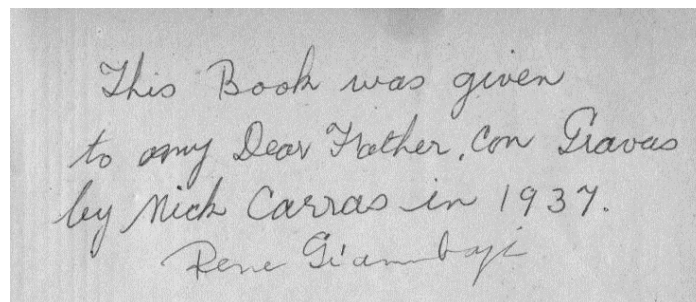 This Book was given
to my Dear Father, Con Gravas
by Nick Carras in 1937.
Rene